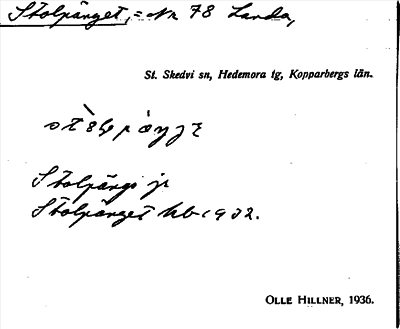 Stolpänget, = Nr 78 Landa,
St. Skedvi sn, Hedemora tg, Kopparbergs län.
Stolpängs jr
Stolpänget hb 1932.
OLLE HILLNER, 1936.